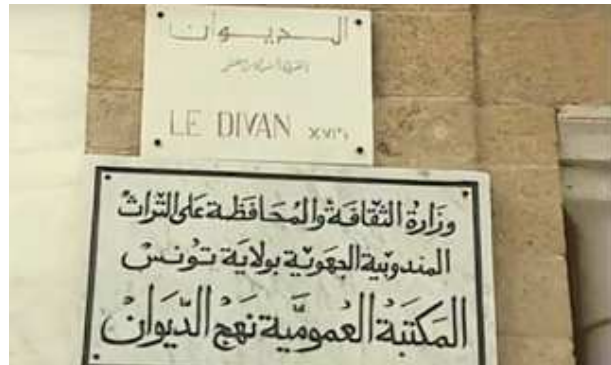 الديوان
LE DIVAN XVI°s
وزارة الثقافة والمحافظة على التراث
المندوبية الجهوية بولاية تونس
المكتبة العمومية نهج الديوان